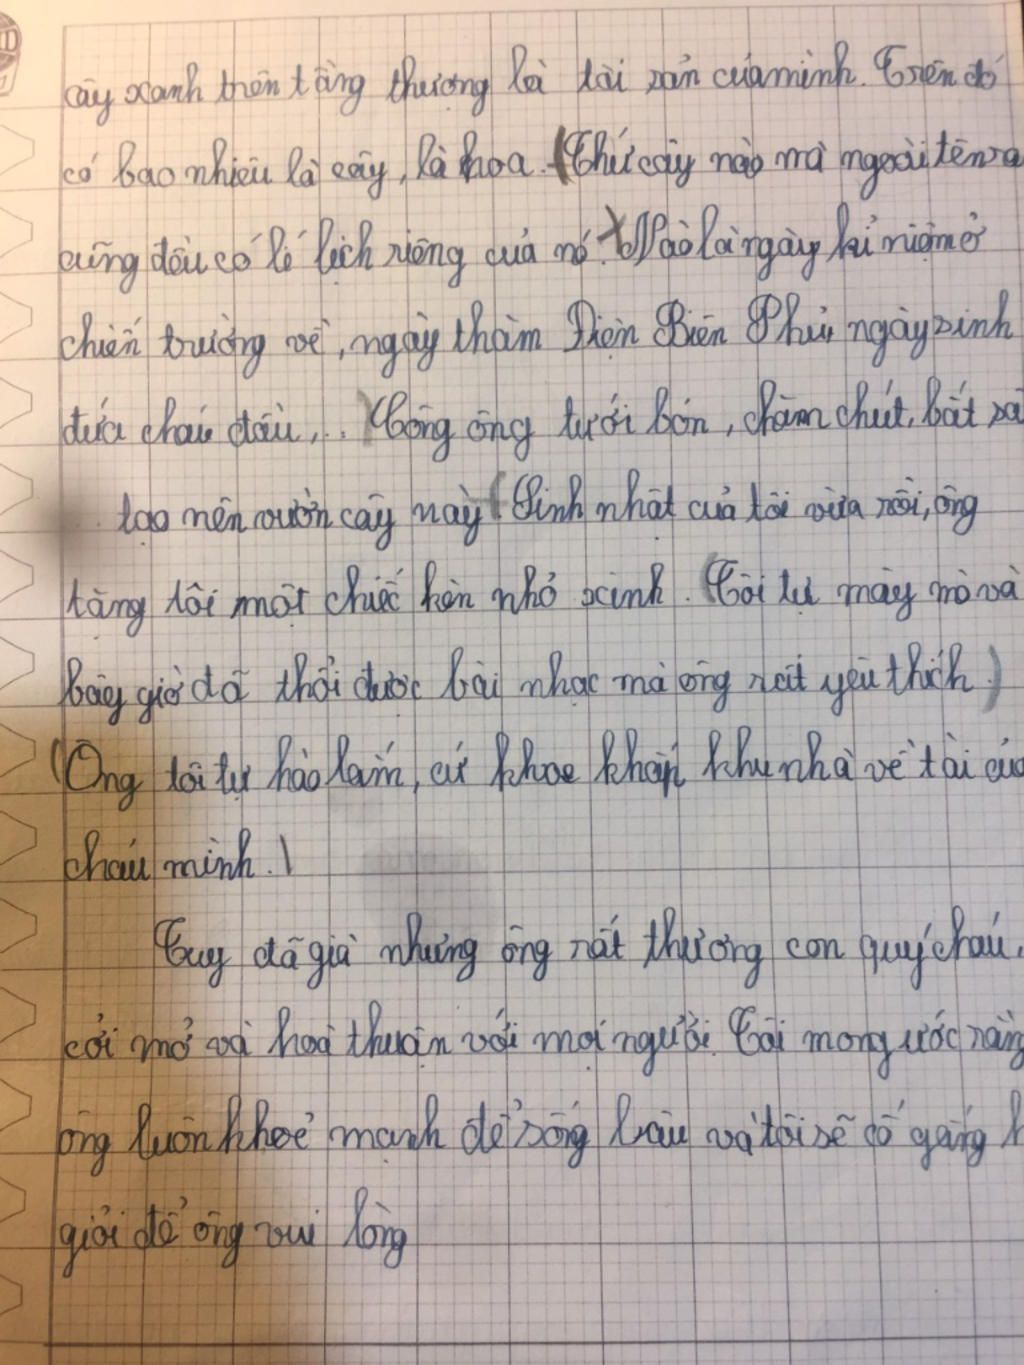 cây xanh trên tầng thượng là tài sản của mình. Trên đó
có bao nhiêu là cây, là hoa. (Thứ cây nào mà ngoài tên ra
cũng đều có lí lịch riêng của nó.) Nào là ngày kỉ niệm ở
chiến trường về, ngày thăm Điện Biên Phủ, ngày sinh
đứa cháu đầu,... (Công ông tưới bón, chăm chút, bắt sâ
tạo nên vườn cây này. (Sinh nhật của tôi vừa rồi, ông
tặng tôi một chiếc kèn nhỏ xinh. (Tôi tự mày mò và
bây giờ đã thổi được bài nhạc mà ông rất yêu thích.)
(Ông tôi tự hào lắm, cứ khoe khắp khu nhà về tài của
cháu mình.)
Tuy đã già nhưng ông rất thương con quý cháu,
cởi mở và hoà thuận với mọi người. Tôi mong ước rằng
ông luôn khoẻ mạnh để sống lâu và tôi sẽ cố gắng h
giỏi để ông vui lòng